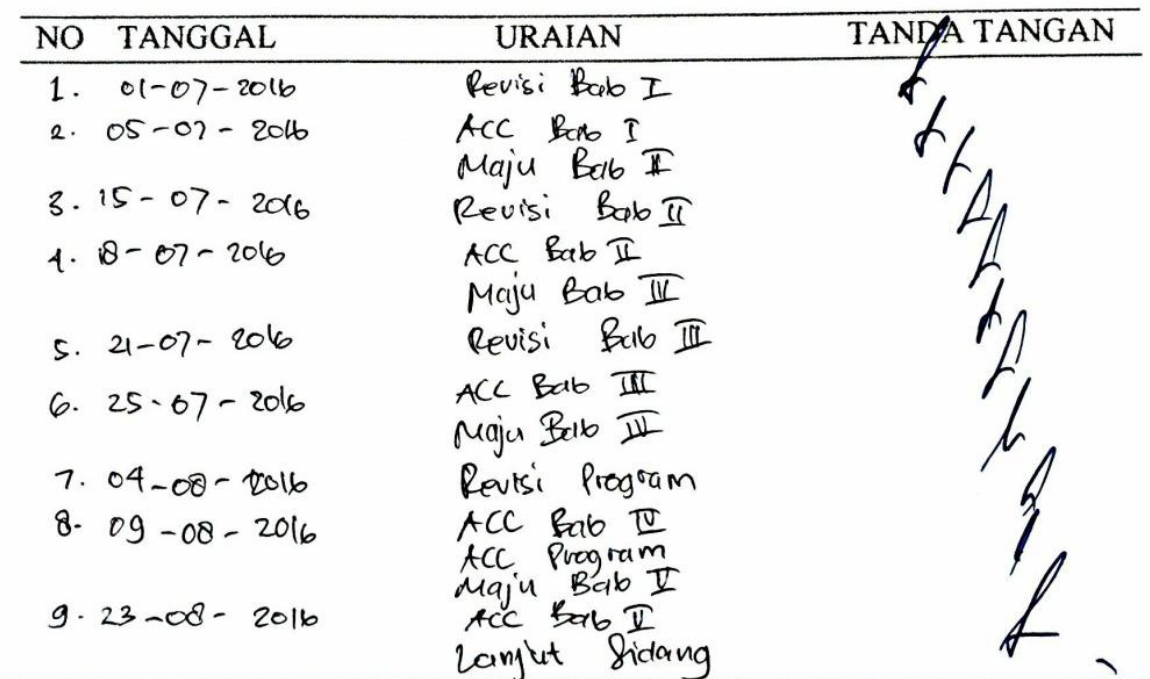 NO TANGGAL URAIAN TANDA TANGAN
1. 01-07-2016 Revisi Bab I
2. 05-07-2016 ACC Bab I
Maju Bab II
3. 15-07-2016 Revisi Bab II
4. 18-07-2016 ACC Bab II
Maju Bab III
5. 21-07-2016 Revisi Bab III
6. 25-07-2016 ACC Bab III
Maju Bab IV
7. 04-08-2016 Revisi Program
8. 09-08-2016 ACC Bab IV
ACC Program
Maju Bab V
9. 23-08-2016 ACC Bab V
Lanjut Sidang